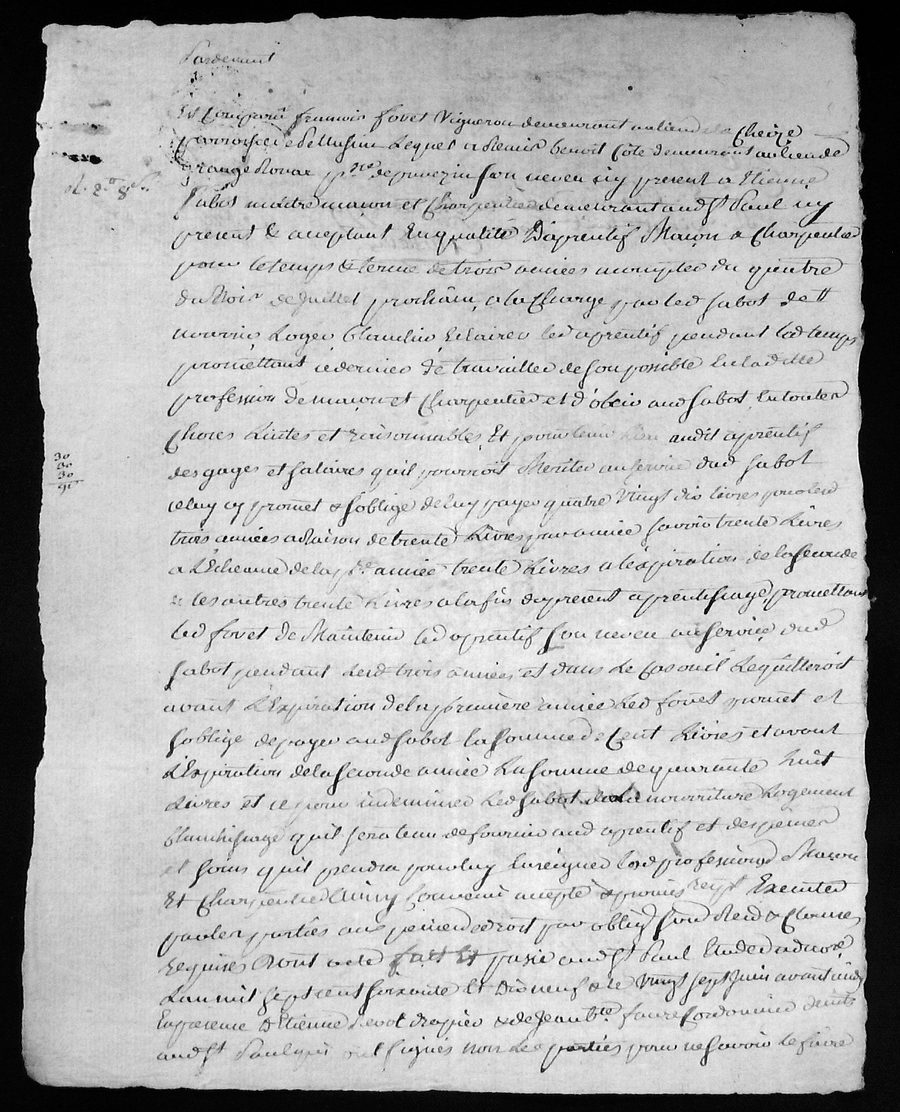 Pardevant
Est Comparu francois fovet Vigneron demeurant au lieu de la Cheize
parroisse de Pellussin Lequel a Remis benoit Cote demeurant au lieu de
grange Rouax psse de pavezin son neveu icy present a Etienne
Sabot maitre macon et Charpentier demeurant aud St Paul icy
present & aceptant En qualité D'aprentif Macon & Charpentier
pour le temps & terme de trois années a compter du quatre
du Mois de Juillet prochain, a la Charge par led sabot de
nourrir Loger blanchir Eclairer led aprentif pendant led temps
promettant ce dernier de travailler de son possible En ladite
profession de macon et Charpentier et d'obeir aud sabot En toutes
Choses Licites et raisonnables, Et pour tenir Lieu audit aprentif
des gages et salaires quil pourroit Meriter au service dud sabot
celuy cy promet & soblige de luy payer quatre Vingt dix livres pour lesd
trois années a Raison de trente Livres par année savoir trente Livres
a L'Echeance de la pre année trente Livres a lexpiration de la seconde
& les autres trente Livres a la fin du present aprentissage, promettant
led fovet de Maintenir led aprentif son neveu au service dud
sabot pendant lesd trois années et dans Le Cas ou il Le quitteroit
avant L'Expiration de la premiere année Led fovet promet et
soblige de payer aud sabot la somme de Cent Livres et avant
L'Expiration de la seconde année La somme de quarante huit
Livres et ce pour indemniser Led sabot de la nourriture Logement
blanchissage quil sera tenu de fournir aud aprentif et des peines
et soins quil prendra pour luy Enseigner lesd professions de Macon
Et Charpentier Ainsy Convenu accepté & promis Executer
par les parties aux peines de droit par oblig Soum Rend & Clauses
requises Dont acte fait Et passé aud St Paul Etude du nore
Lan mil sept cent soixante Et Dix neuf & le Vingt sept Juin avant midy
En presence D'Etienne Revol drapier & de Jean Bte faure Cordonnier
aud St Paul qui ont signés non Les parties pour ne savoir le faire
r. 2° 8s.
30
30
30
90